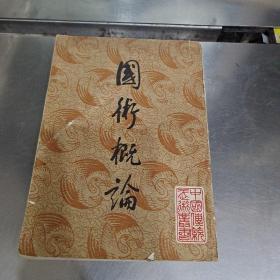 國術概論
中國傳統
武術叢書